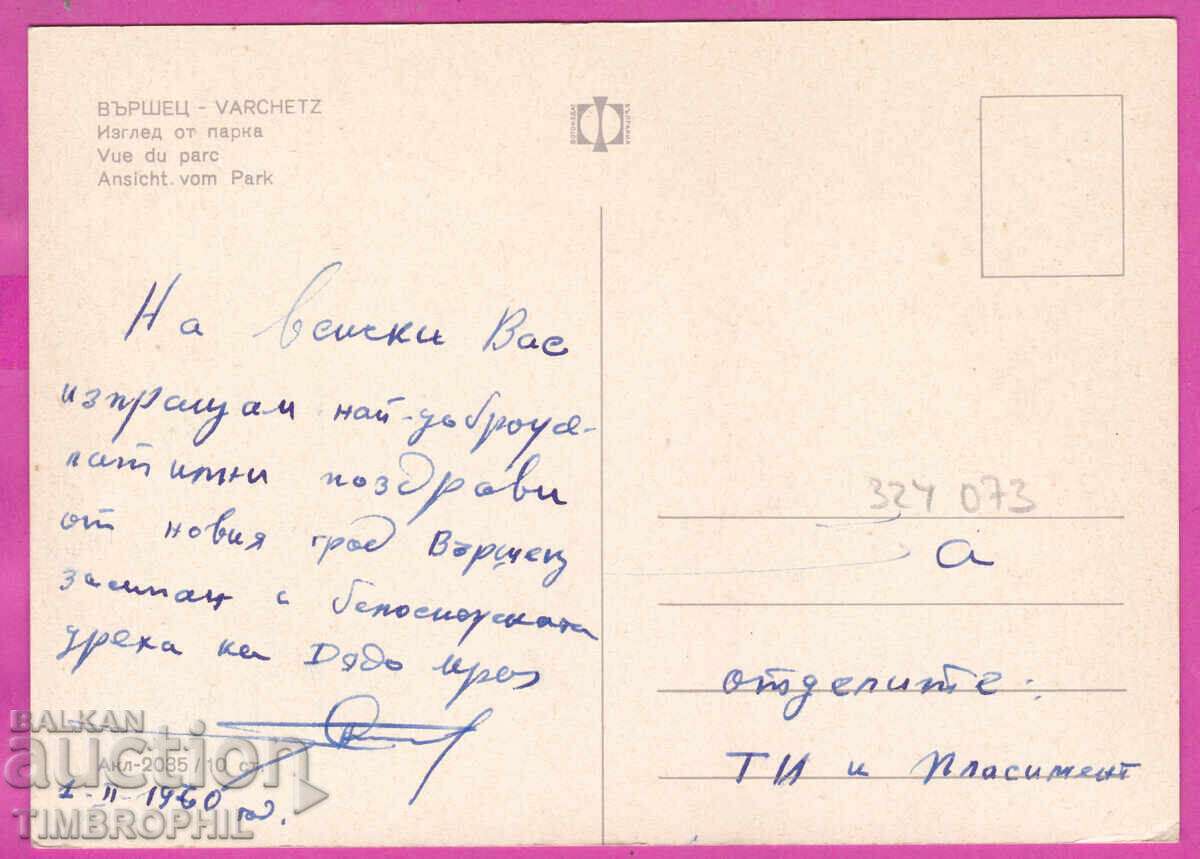 ВЪРШЕЦ - VARCHETZ
Изглед от парка
Vue du parc
Ansicht. vom Park
ФОТОИЗДАТ
БЪЛГАРИЯ
На всички Вас
изпращам най-доброже-
лателни поздрави
от новия град Вършец
засипан с белоснежната
дреха на Дядо Мраз
Акл-2035/10 ст.
1-II-1960 год.
324 073
а
отделите:
ТИ и Пласимент
BALKAN
auction
TIMBROPHIL